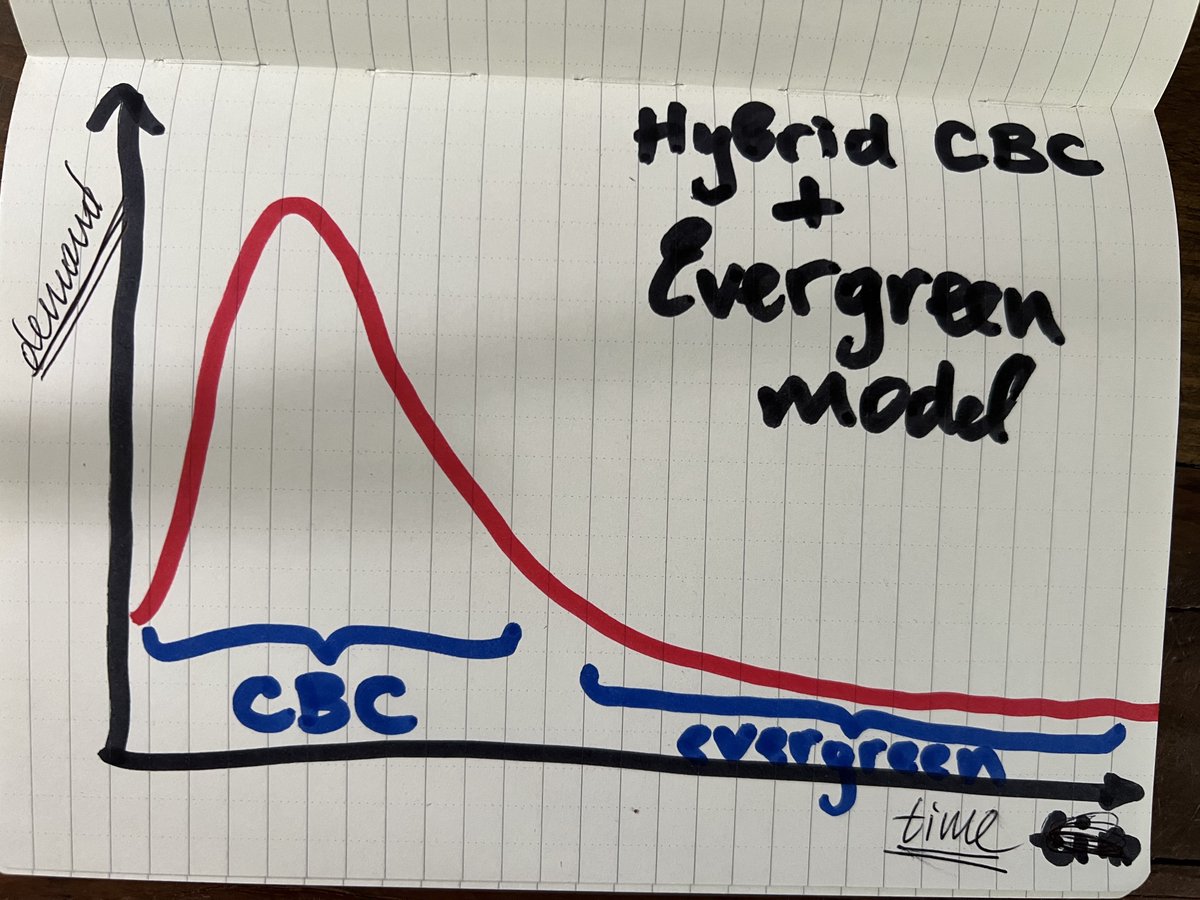 Hybrid CBC
+
Evergreen
model
demand
CBC
evergreen
time